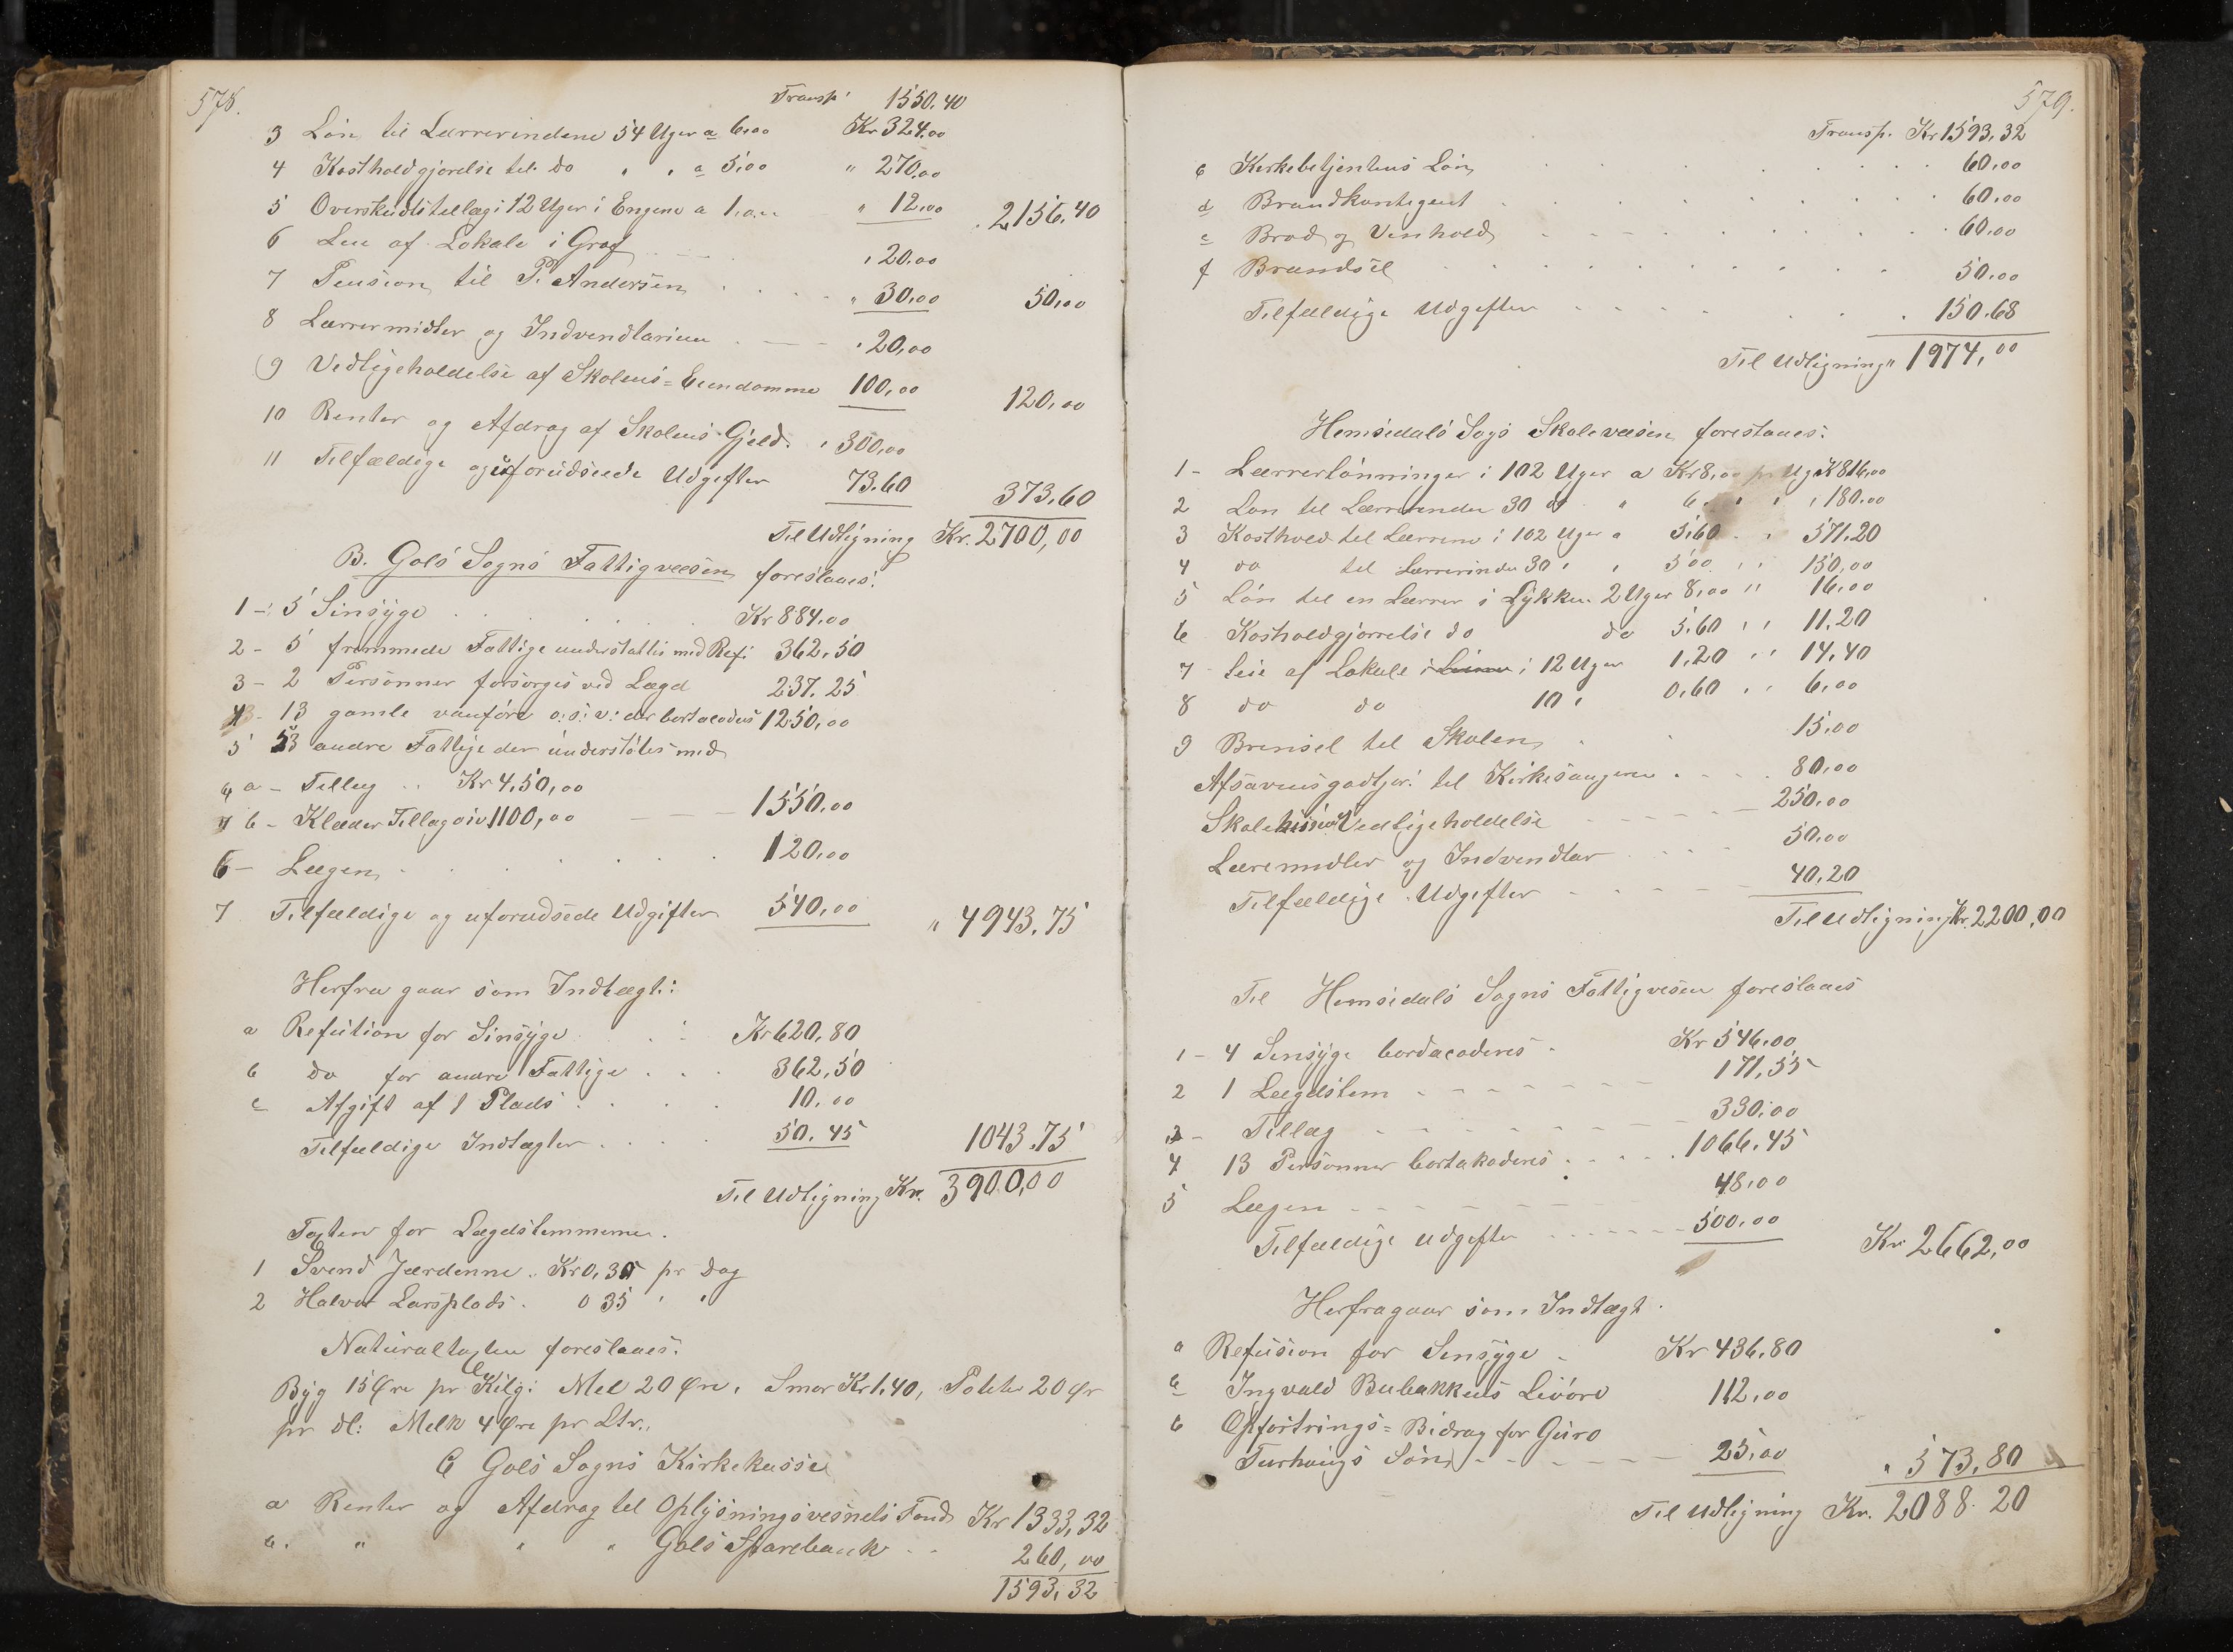 578.
Transp. 1550.40
3 Løn til Lærrerindene 54 Uger a 6,00 Kr 324.00
4 Kostholdgjørelse til do " " a 5,00 " 270,00
5 Overskudstillæg i 12 Uger i Engene a 1,0.. " 12,00 2156,40
6 Leie af Lokale i Grøf " 20.00
7 Pension til P. Andersen " 30,00 50,00
8 Lærrermidler og Indvendtarium " 20,00
9 Vedligeholdelse af Skolens=Eiendomme 100,00 120,00
10 Renter og Afdrag af Skolens Gjeld. " 300,00
11 Tilfældige og uforudseede Udgifter 73.60 373,60
Til Udligning Kr. 2700,00
B. Gols Sogns Fattigvæsen foreslaaes:
1 - 5 Sinsyge Kr 884,00
2 - 5 fremmede Fattige understøttes med Ref: 362,50
3 - 2 Personner forsørges ved Lægd 237,25
4 - 13 gamle vanføre o: s: v: der bortacoderes 1250,00
5 53 andre Fattige der understøtes med
a - Tillæg Kr 4,50,00
b - Klæder Tillæg oiv 1100,00 1550,00
6 - Lægen 120,00
7 Tilfældige og uforudsede Udgifter 540,00 " 4943.75
Herfra gaar som Indtægt:
a Refution for Sinsyge Kr 620,80
b do for andre Fattige 362,50
c Afgift af 1 Plads 10,00
Tilfældige Indtægter 50.45 1043.75
Til Udligning Kr. 3900,00
Taxten for Lægdslemmerne.
1 Svend Jærdenne. Kr 0,35 pr Dag
2 Halvor Larsplads. 0 35 " "
Naturaltaxten foreslaaes:
Byg 15 Øre pr Kilg: Mel 20 Øre, Smør Kr 1,40, Poteter 20 Ør
pr dl: Melk 4 Øre pr Ltr.,
C Gols Sogns Kirkekasse
a Renter og Afdrag til Oplysningsvesnets Fond Kr 1333,32
b. " " " Gols Sparebank 260,00
1593,32
579.
Transp. Kr 1593,32
c Kirkebetjentens Løn 60.00
d Brandkontigent 60.00
e Brød og Vinhold 60.00
f Brændsel 50.00
Tilfældige Udgifter 150.68
Til Udligning " 1974,00
Hemsedals Sogs Skolevæsen foreslaaes:
1 - Lærrerlønninger i 102 Uger a Kr 8,00 pr Ug K 816,00
2 Løn til Lærrerinder 30 do " 6 " " " 180.00
3 Kosthold til Lærrerne i 102 Uger a 5,60 " 571.20
4 do til Lærrerinder 30 " " 5 00 " " 150,00
5 Løn til en Lærrer i Lykken 2 Uger 8,00 " 16,00
6 Kostholdgjørrelse do do 5.60 " " 11.20
7 Leie af Lokale i 12 Uger 1,20 " " 14,40
8 do do 10 " 0,60 " " 6,00
9 Brensel til Skolen 15,00
Afsavnsgodtgjør: til Kirkesangeren 80,00
Skolehusenes Vedligeholdelse 250.00
Læremidler og Indvendtar 50.00
Tilfældige Udgifter 40,20
Til Udligning Kr. 2200,00
Til Hemsedals Sogns Fattigvesen foreslaaes
1 - 4 Sensyge bordacoderes Kr 546,00
2 1 Lægdslem 171,55
3 - Tillæg 330,00
4 13 Personner bortakoderes 1066,45
5 Lægen 48,00
Tilfældige udgifter 500,00 Kr 2662,00
Herfragaar som Indtægt.
a Refusion for Sensyge Kr 436,80
b Ingvald Bubakkens Livøre 112,00
c Opfostrings=Bidrag for Guro
Turhaugs Søn 25,00 " 573,80
Til Udligning Kr. 2088.20